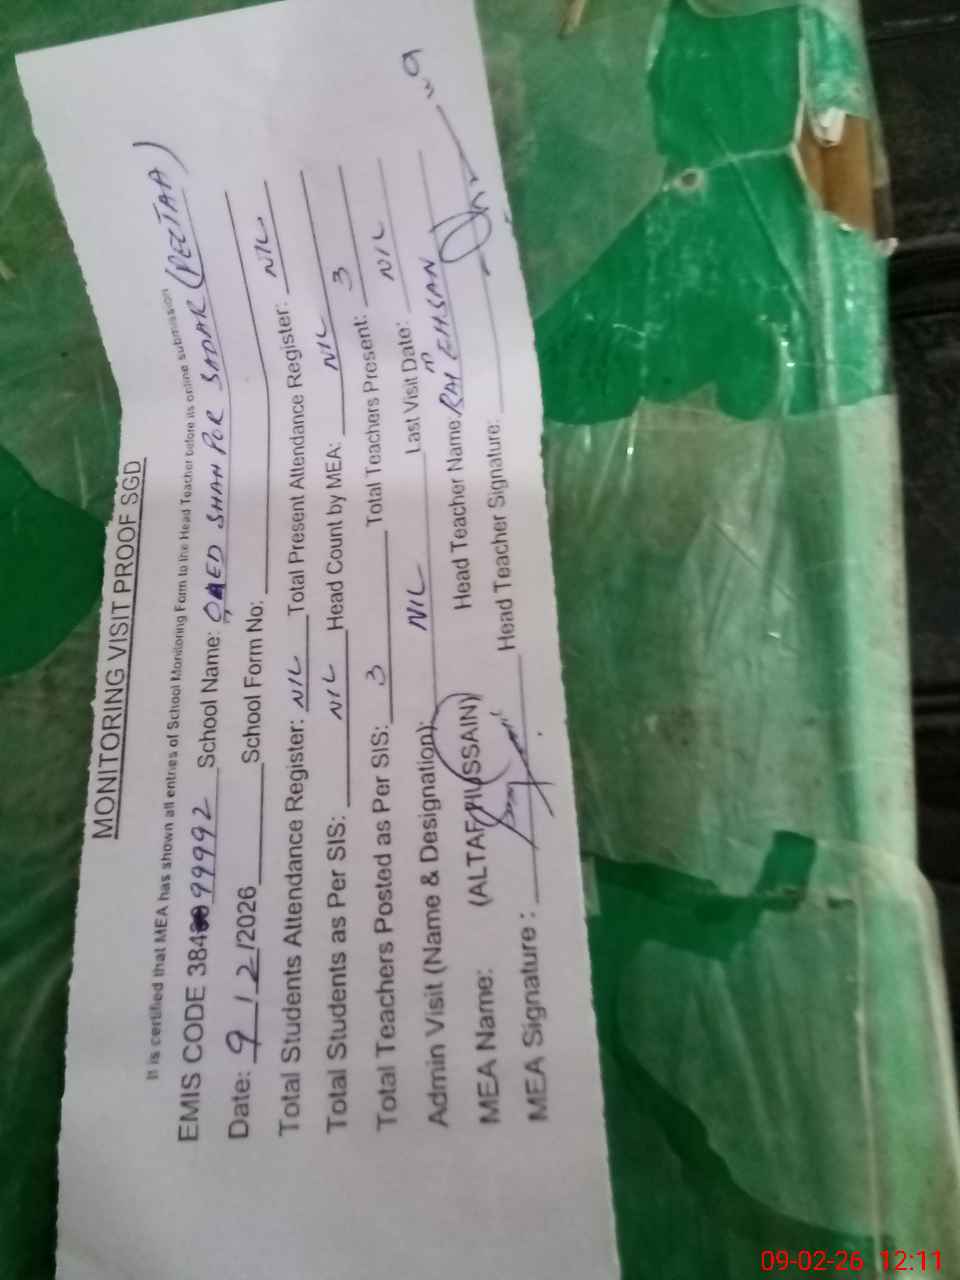 MONITORING VISIT PROOF SGD
It is certified that MEA has shown all entries of School Monitoring Form to the Head Teacher before its online submission
EMIS CODE 384 99992 School Name: QAED SHAH POR SADAR (PECTAA)
Date: 9/2/2026 School Form No:
Total Students Attendance Register: NIL Total Present Attendance Register: NIL
Total Students as Per SIS: NIL Head Count by MEA: NIL
Total Teachers Posted as Per SIS: 3 Total Teachers Present: 3
Admin Visit (Name & Designation): NIL Last Visit Date: NIL
MEA Name: (ALTAF HUSSAIN) Head Teacher Name: RAI EHSAN
MEA Signature: Head Teacher Signature:
09-02-26 12:11